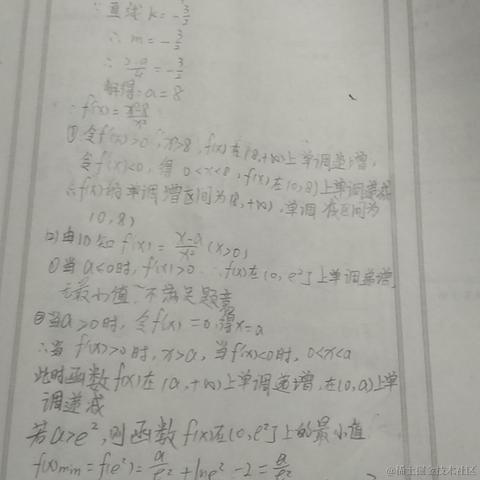 ∵直线 k = -3/2
∴ m = -3/2
∴ (2-a)/4 = -3/2
解得: a = 8
∴ f'(x) = (x-8)/x²
①令f'(x)>0, x>8, f(x)在(8,+∞)上单调递增,
令f'(x)<0, 得 0<x<8, f(x)在(0,8)上单调递减
∴f(x)的单调增区间为(8,+∞), 单调减区间为
(0,8)
(2)由(1)知 f'(x) = (x-a)/x² (x>0)
①当a<0时, f'(x)>0 ∴f(x)在(0,e²]上单调递增
无最小值, 不满足题意
②当a>0时, 令f'(x)=0, 得x=a
∴当 f'(x)>0时, x>a, 当f'(x)<0时, 0<x<a
此时函数f(x)在(a,+∞)上单调递增, 在(0,a)上单
调递减
若a>e², 则函数f(x)在(0,e²]上的最小值
f(x)min = f(e²) = a/e² + lne² - 2 = a/e²
@稀土掘金技术社区